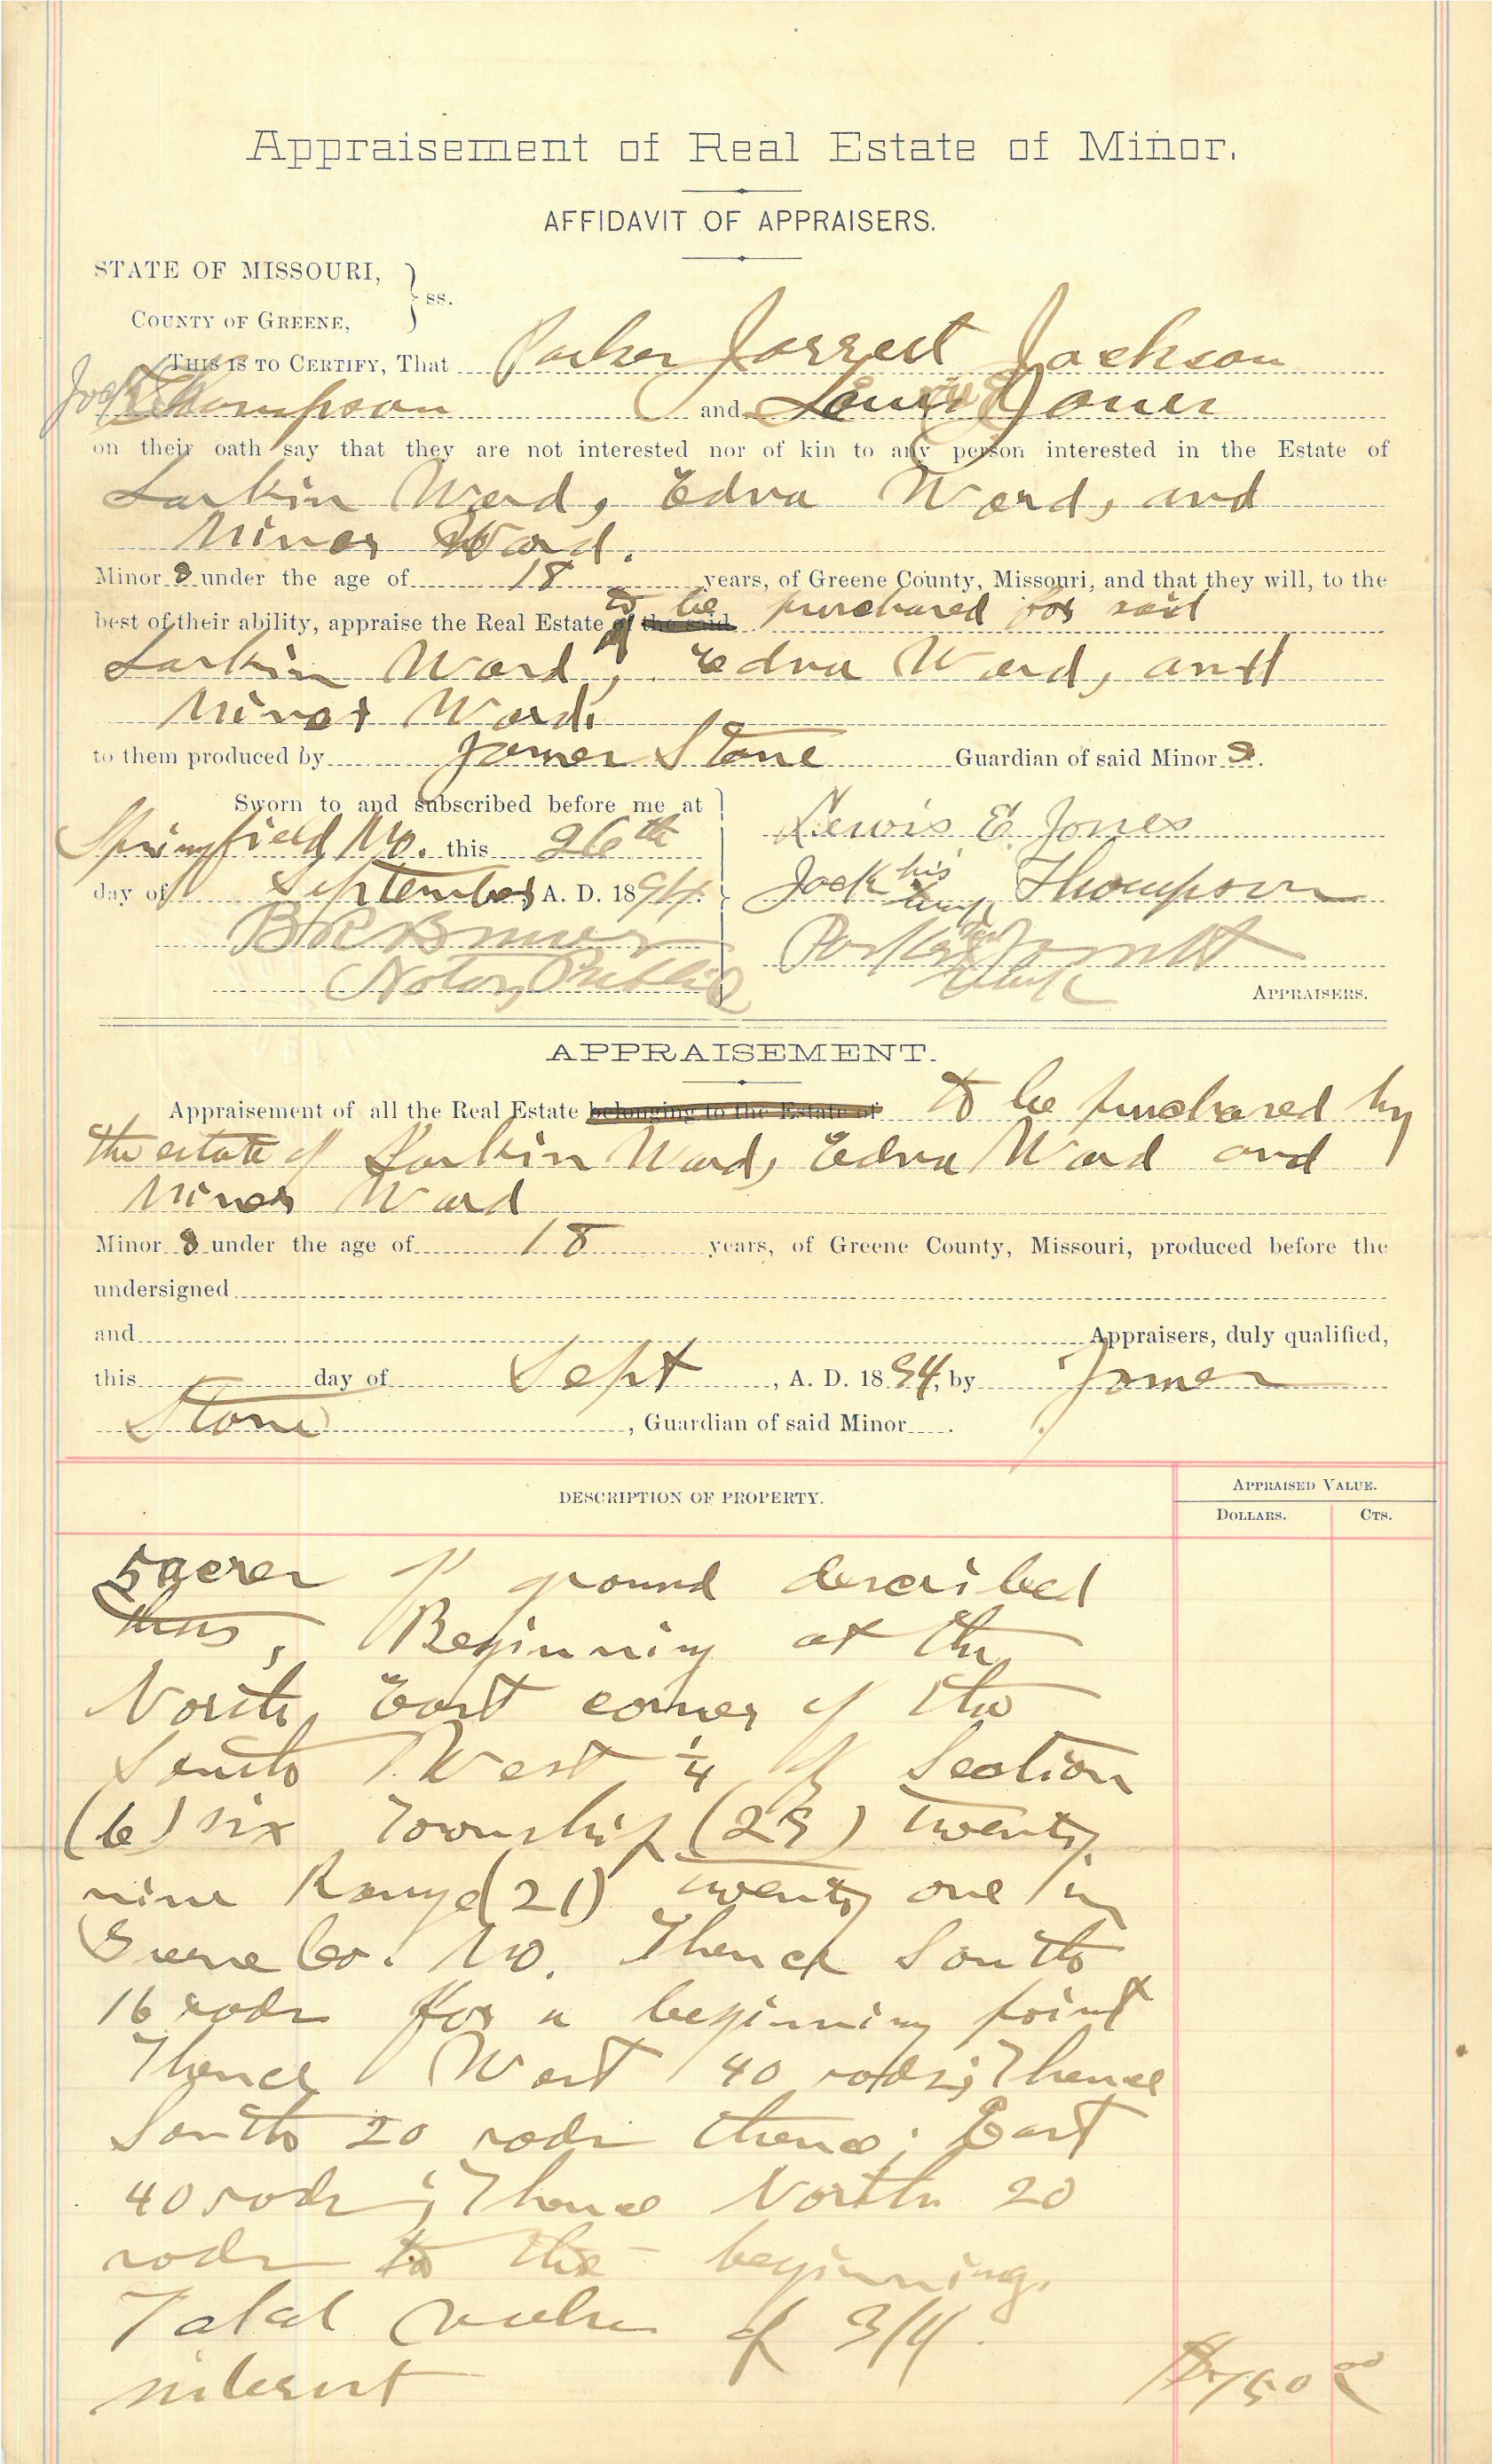 Appraisement of Real Estate of Minor.
AFFIDAVIT OF APPRAISERS.
STATE OF MISSOURI,
COUNTY OF GREENE, } ss.
THIS IS TO CERTIFY, That Parker Jarrett Jackson
Jack Thompson and Lewis E Jones
on their oath say that they are not interested nor of kin to any person interested in the Estate of
Larkin Ward, Edna Ward, and
Minor Ward.
Minor s under the age of 18 years, of Greene County, Missouri, and that they will, to the
to be purchased for said
best of their ability, appraise the Real Estate of the said
Larkin Ward, Edna Ward, and
Minor Ward.
to them produced by James Stone Guardian of said Minor s.
Sworn to and subscribed before me at
Springfield Mo. this 26th
day of September A. D. 1894.
Notary Public
Lewis E. Jones
Jack his Thompson
Parker Jarrett
mark
APPRAISERS.
APPRAISEMENT.
Appraisement of all the Real Estate belonging to the Estate of to be purchased by
the estate of Larkin Ward, Edna Ward and
Minor Ward
Minor s under the age of 18 years, of Greene County, Missouri, produced before the
undersigned
and Appraisers, duly qualified,
this day of Sept, A. D. 1894, by James
Stone, Guardian of said Minor .
DESCRIPTION OF PROPERTY.
APPRAISED VALUE.
DOLLARS. CTS.
5 acres of ground described
thus, Beginning at the
North East corner of the
South West 1/4 of Section
(6) six Township (29) twenty
nine Range (21) twenty one in
Greene Co. Mo. Thence South
16 rods for a beginning point
Thence West 40 rods; Thence
South 20 rods thence; East
40 rods; Thence North 20
rods to the beginning.
Total value of 3/4
interest $750 00